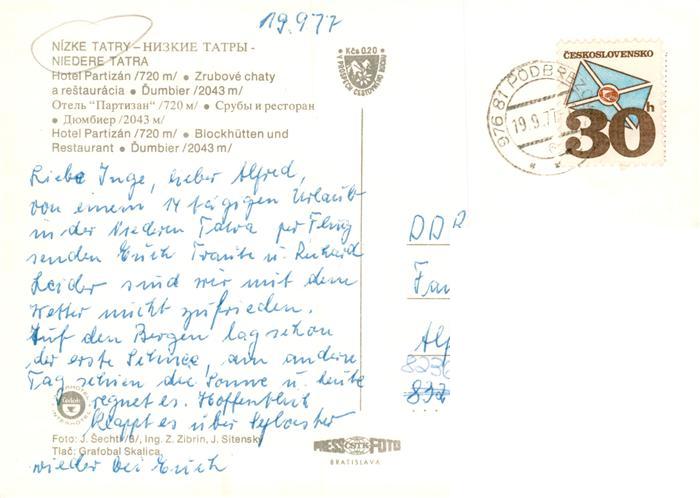 19.9 77
NÍZKE TATRY – НИЗКИЕ ТАТРЫ -
NIEDERE TATRA
Hotel Partizán /720 m/ ● Zrubové chaty
a reštaurácia ● Ďumbier /2043 m/
Отель "Партизан" /720 м/ ● Срубы и ресторан
● Дюмбиер /2043 m/
Hotel Partizán /720 m/ ● Blockhütten und
Restaurant ● Ďumbier /2043 m/
Kčs 0.20
V PROSPECH CESTOVNÉHO RUCHU
976 81 PODBREZO
19.9.77
ČESKOSLOVENSKO
30h
Liebe Inge, lieber Alfred,
von einem 14 tägigen Urlaub
in der Niederen Tatra per Flug
senden Euch Traute u. Richard
Leider sind wir mit dem
Wetter nicht zufrieden.
Auf den Bergen lag schon
der erste Schnee, am andern
Tag schien die Sonne u. heute
regnet es. Hoffentlich
klappt es über Sylvester
wieder bei Euch
DDR
Fa
Alf
INTERHOTEL
Foto: J. Šechtl /8/, Ing. Z. Zibrin, J. Sitenský
Tlač: Grafobal Skalica,
PRESS ČSTK FOTO
BRATISLAVA